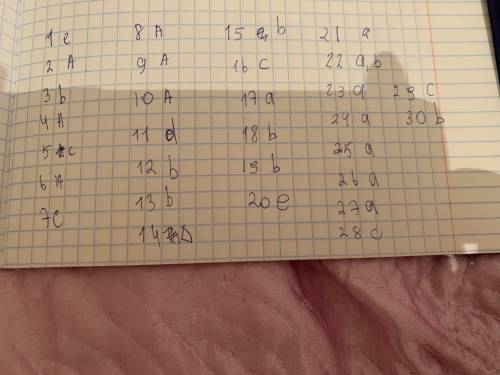 1 c
2 A
3 b
4 A
5 c
6 A
7 C
8 A
9 A
10 A
11 d
12 b
13 b
14 D
15 a, b
16 c
17 a
18 b
19 b
20 e
21 a
22 a, b
23 a
24 a
25 a
26 a
27 a
28 c
29 c
30 b